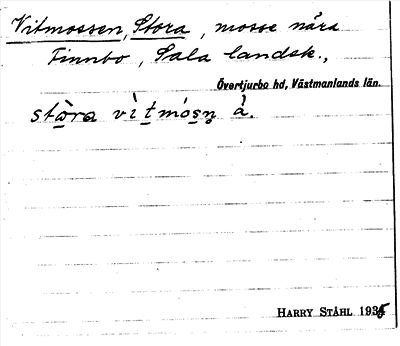 Vitmossen, Stora, mosse nära
Finnbo, Sala landsk.,
Övertjurbo hd, Västmanlands län.
stⱥra vìtmósn̥ å̀.
HARRY STÅHL 1935